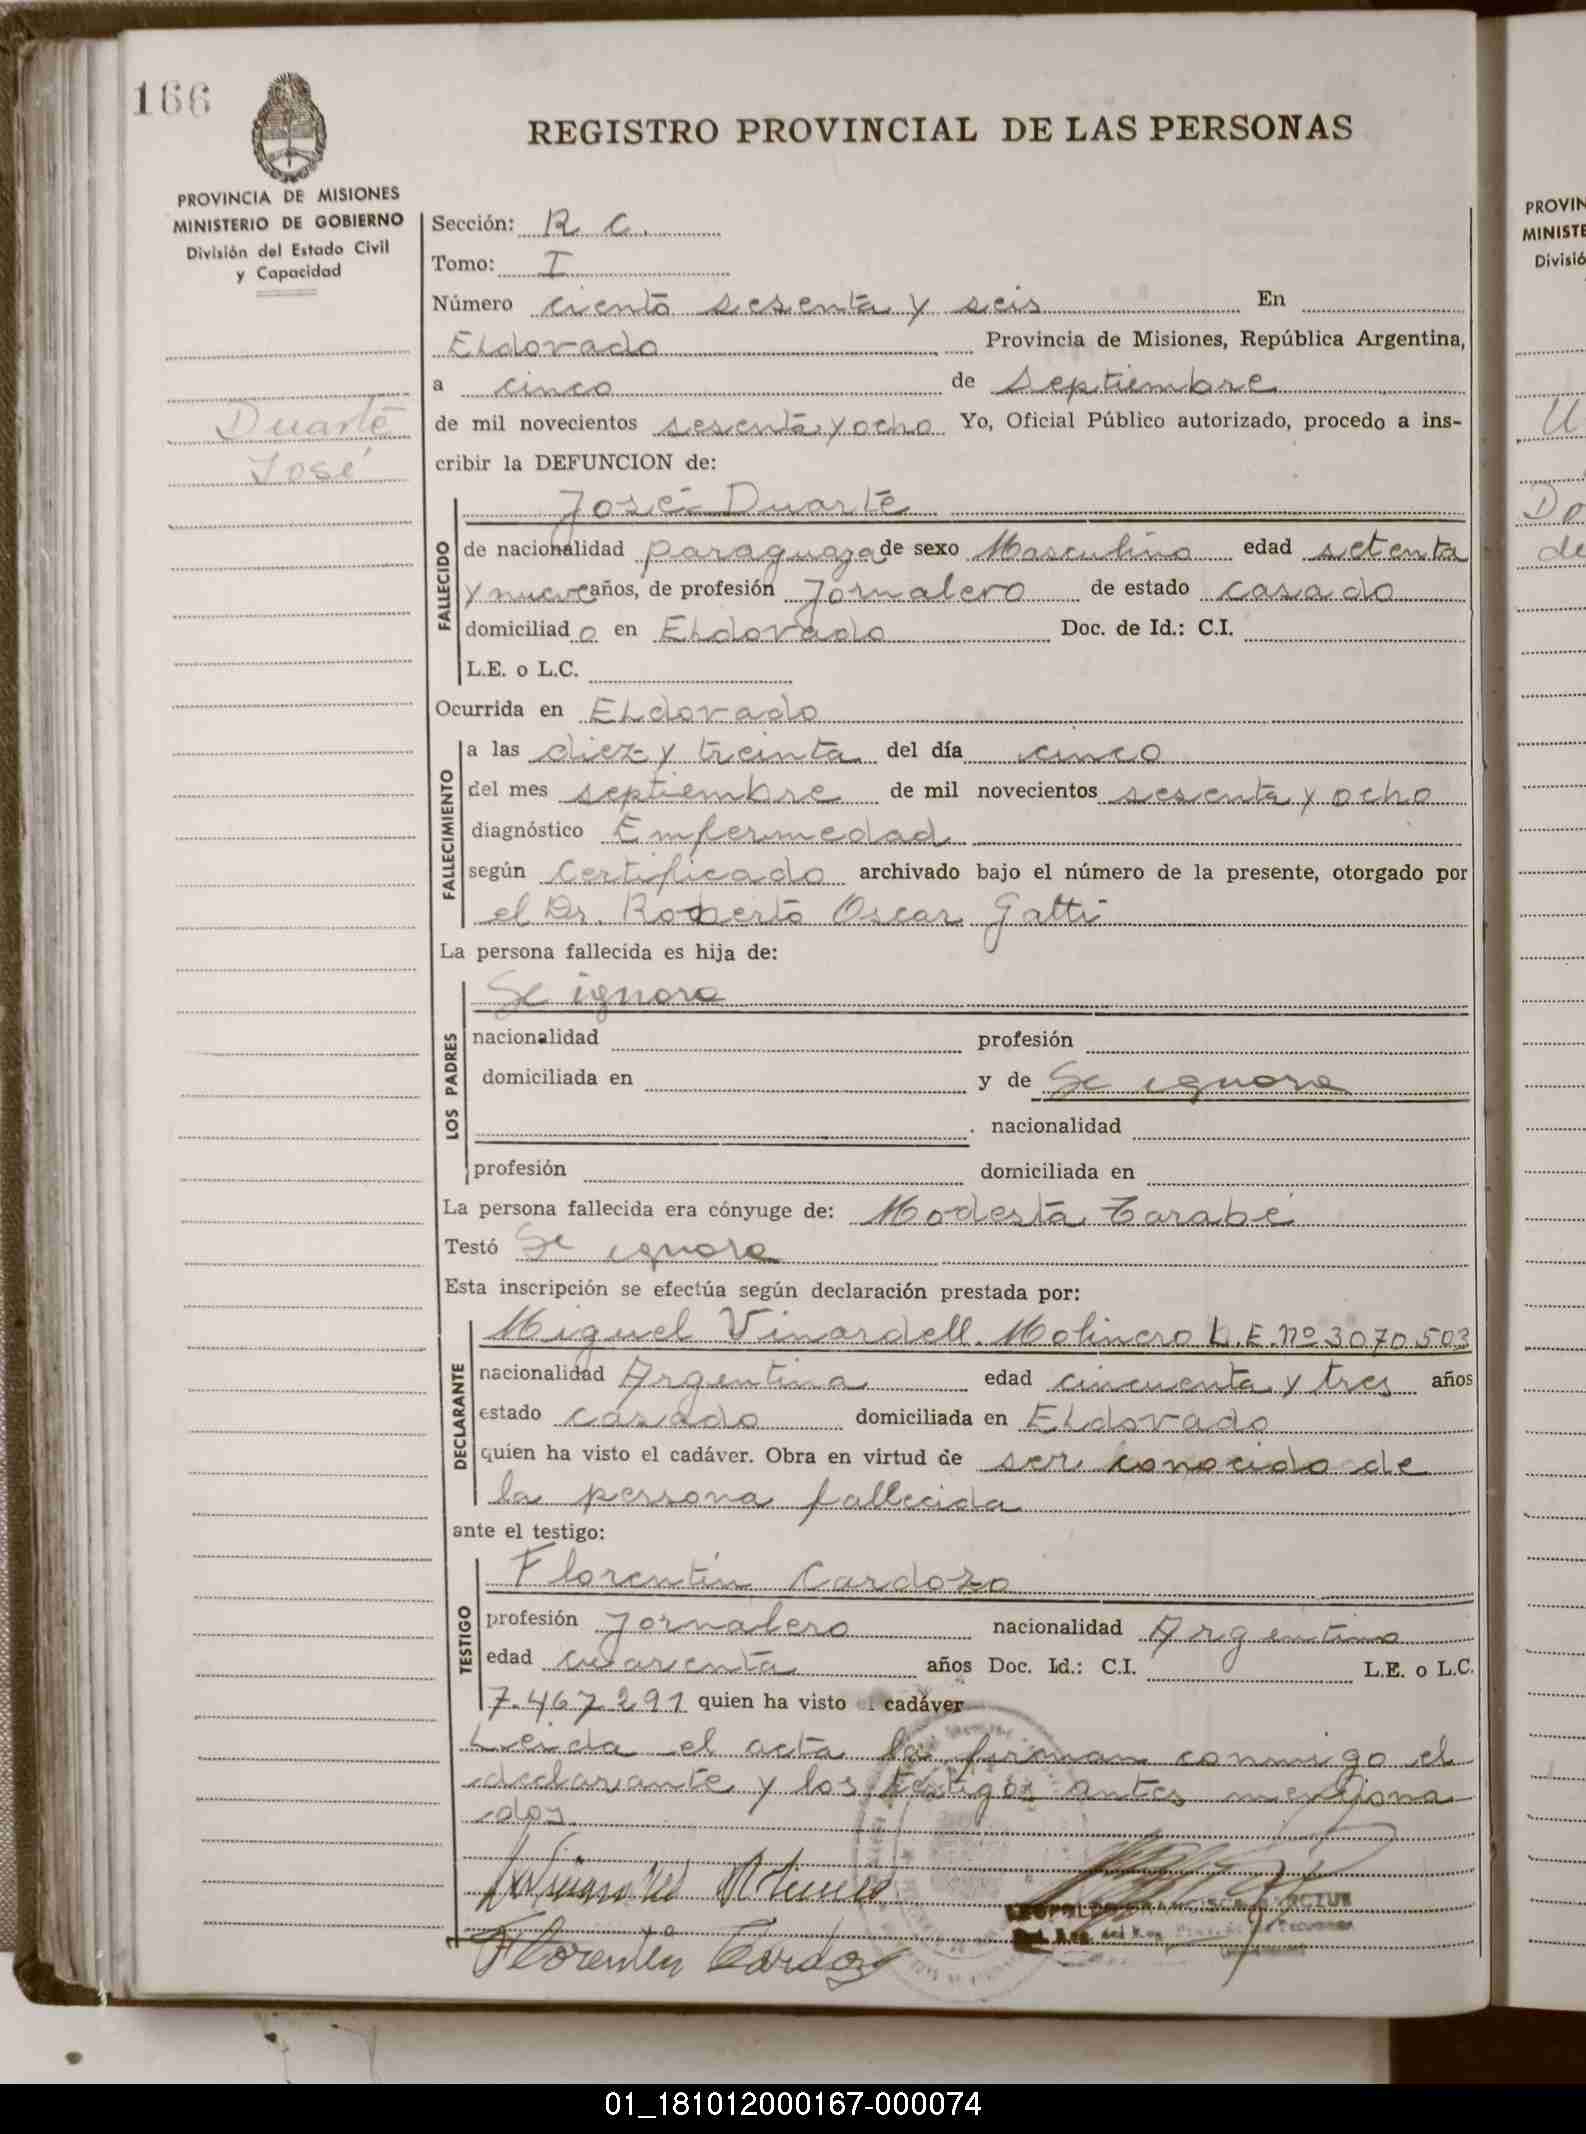 166
REGISTRO PROVINCIAL DE LAS PERSONAS
PROVINCIA DE MISIONES
MINISTERIO DE GOBIERNO
División del Estado Civil
y Capacidad
Duarte
José
Sección: R C.
Tomo: I
Número ciento sesenta y seis En
Eldorado Provincia de Misiones, República Argentina,
a cinco de Septiembre
de mil novecientos sesenta y ocho Yo, Oficial Público autorizado, procedo a ins-
cribir la DEFUNCION de:
FALLECIDO
José Duarte
de nacionalidad paraguaya de sexo Masculino edad setenta
y nueve años, de profesión Jornalero de estado casado
domiciliado en Eldorado Doc. de Id.: C.I.
L.E. o L.C.
Ocurrida en Eldorado
FALLECIMIENTO
a las diez y treinta del día cinco
del mes septiembre de mil novecientos sesenta y ocho
diagnóstico Enfermedad
según Certificado archivado bajo el número de la presente, otorgado por
el Dr. Roberto Oscar Gatti
La persona fallecida es hija de:
LOS PADRES
Se ignora
nacionalidad profesión
domiciliada en y de Se ignora
. nacionalidad
profesión domiciliada en
La persona fallecida era cónyuge de: Modesta Tarabé
Testó Se ignora
Esta inscripción se efectúa según declaración prestada por:
DECLARANTE
Miguel Vinardell Molinero L.E. Nº 3070503
nacionalidad Argentina edad cincuenta y tres años
estado casado domiciliada en Eldorado
quien ha visto el cadáver. Obra en virtud de ser conocido de
la persona fallecida
ante el testigo:
TESTIGO
Florentín Cardozo
profesión Jornalero nacionalidad Argentino
edad cuarenta años Doc. Id.: C.I. L.E. o L.C.
7.467.291 quien ha visto el cadáver
Leida el acta la firman conmigo el
declarante y los testigos antes menciona
dos.
Florentín Cardozo
PROVIN
MINISTE
Divisió
01_181012000167-000074